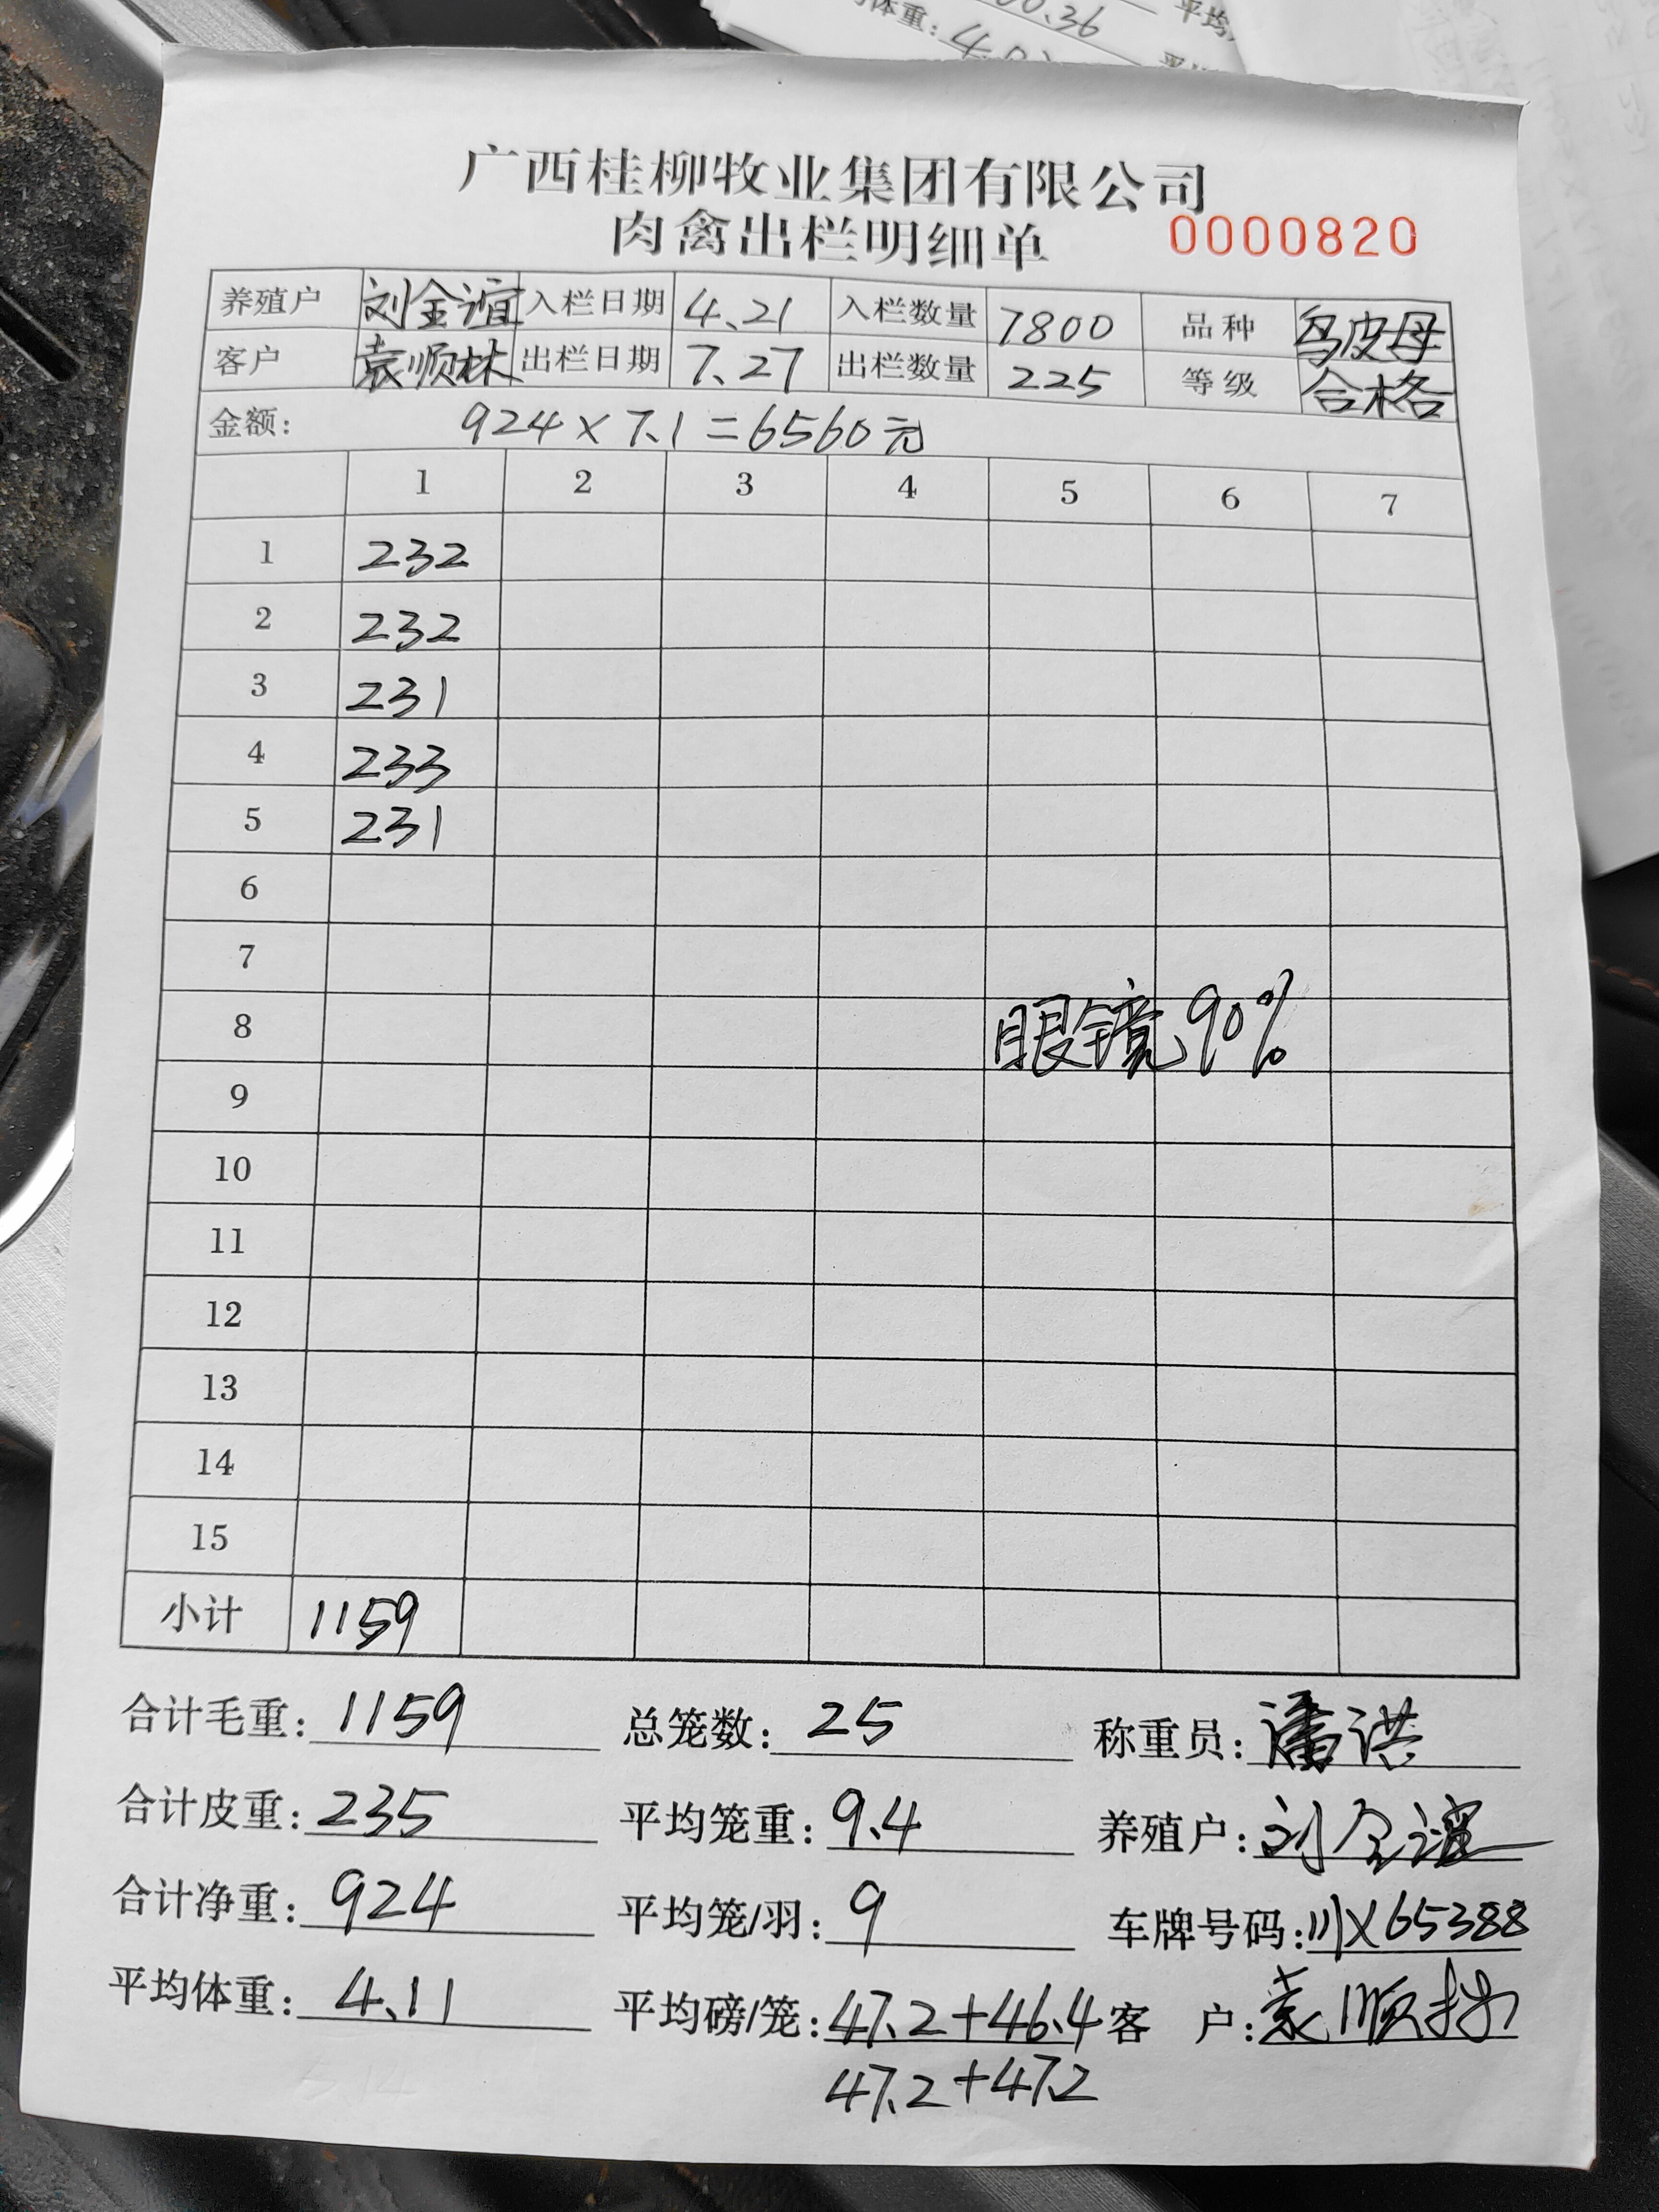 00.36 平均
体重: 4.0
广西桂柳牧业集团有限公司
肉禽出栏明细单 0000820
养殖户 刘金谊 入栏日期 4.21 入栏数量 7800 品种 乌皮母
客户 袁顺林 出栏日期 7.27 出栏数量 225 等级 合格
金额: 924×7.1=6560元
1 2 3 4 5 6 7
1 232
2 232
3 231
4 233
5 231
6
7
8 眼镜90%
9
10
11
12
13
14
15
小计 1159
合计毛重: 1159 总笼数: 25 称重员: 潘洪
合计皮重: 235 平均笼重: 9.4 养殖户: 刘金谊
合计净重: 924 平均笼/羽: 9 车牌号码: 川X65388
平均体重: 4.11 平均磅/笼: 47.2+46.4 客 户: 袁顺林
47.2+47.2